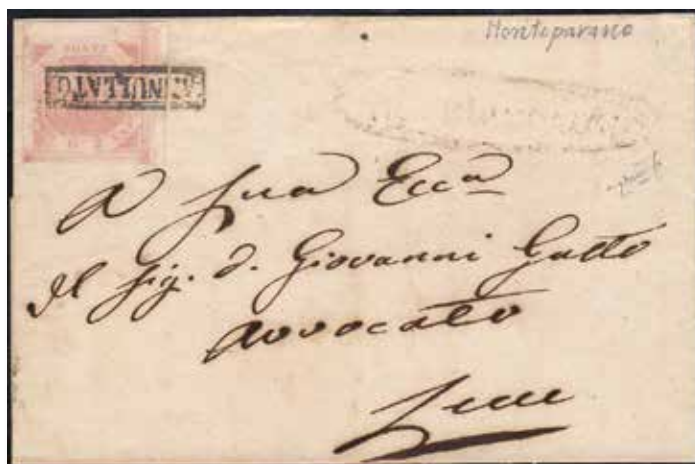 Monteparano
ANNULLATO
A Sua Ecca
Il sig. d. Giovanni Gatto
Avvocato
Lecce